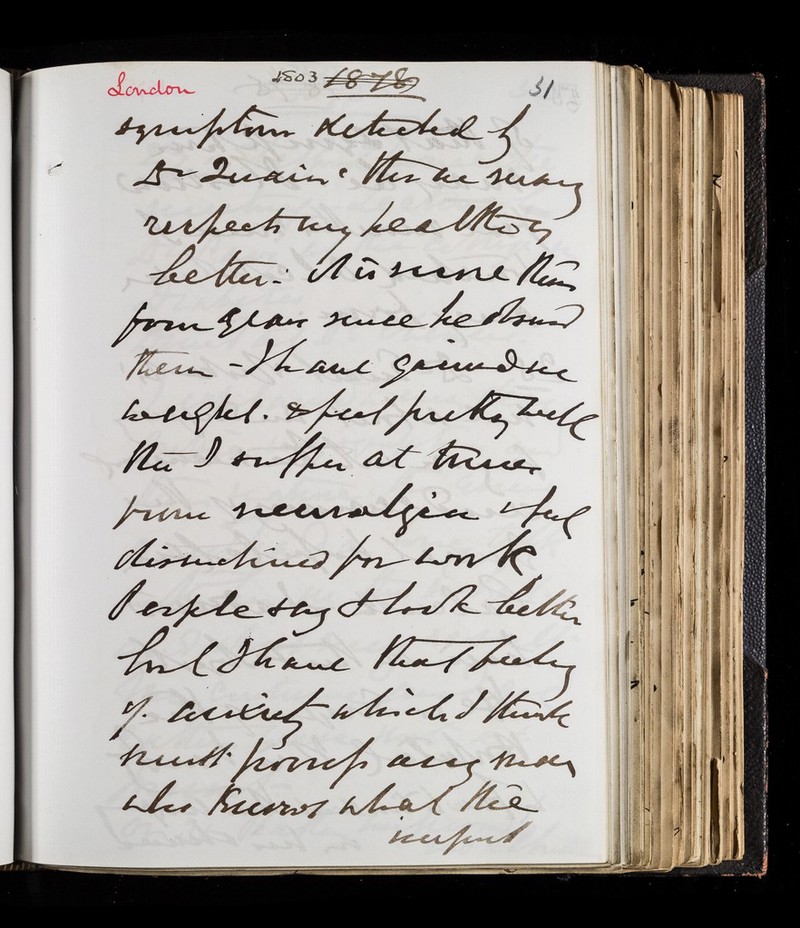 London 1803 1878 31
symptoms detected by
Dr Quain: there are many
respects my health is
better: it is more than
four years since he observed
them - I have gained in
weight. & feel pretty well
tho I suffer at times
from neuralgia & feel
disinclined for work
People say I look better
but I have that feeling
of anxiety which I think
must possess any man
who knows what the